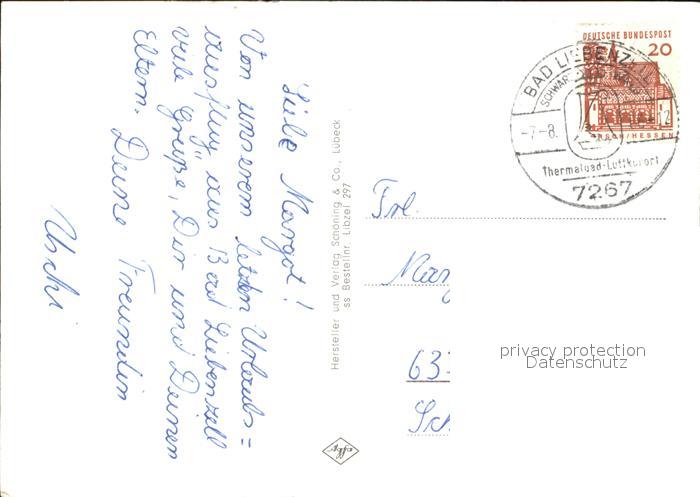 Liebe Margot!
Von unserem letzten Urlaubs=
ausflug aus Bad Liebenzell
viele Grüße, Dir und Deinen
Eltern. Deine Freundin
Uschi
Hersteller und Verlag Schöning & Co., Lübeck
ss Bestellnr. Libzel 297
Agfa
DEUTSCHE BUNDESPOST
20
LORSCH/HESSEN
BAD LIEBENZELL
-7.-8.
12
Thermalbad-Luftkurort
7267
Frl.
Marg
63
privacy protection
Datenschutz